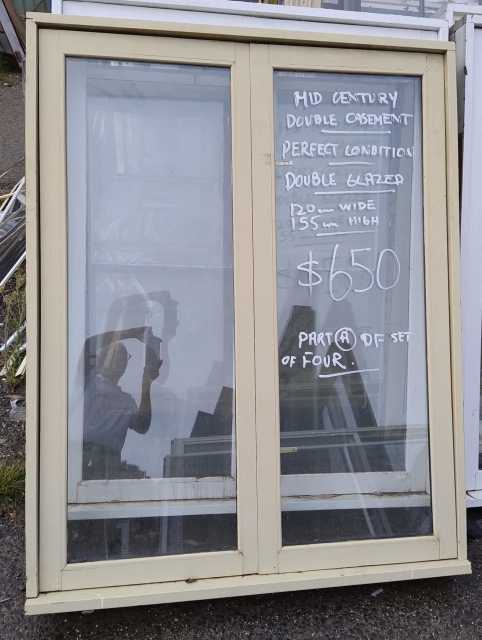 MID CENTURY
DOUBLE CASEMENT
PERFECT CONDITION
DOUBLE GLAZED
120cm WIDE
155cm HIGH
$650
PART A OF SET
OF FOUR.